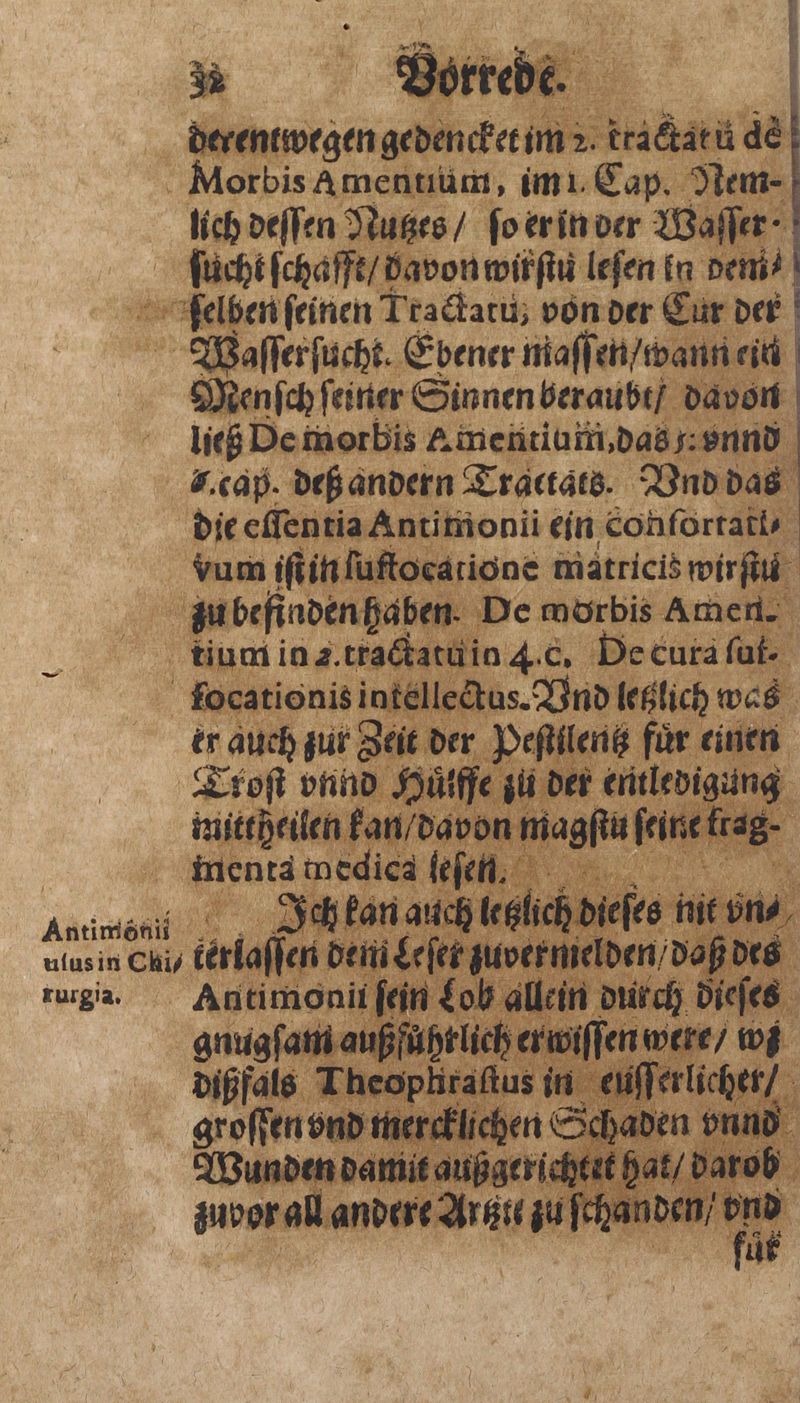 32 Vorrede.
derentwegen gedencket im 2. tractatu dē
Morbis Amentium, im 1. Cap. Nem-
lich deſſen Nutzes / ſo er in der Waſſer-
ſucht ſchafft / davon wirſtu leſen in dem-
ſelben ſeinen Tractatu, von der Cur der
Waſſerſucht. Ebener maſſen / wann ein
Menſch ſeiner Sinnen beraubt / davon
ließ De morbis Amentium, das 5: vnnd
cap. deß andern Tractats. Vnd das
die eſſentia Antimonii ein confortati-
vum iſt in ſuffocatione matricis wirſtu
zu befinden haben. De morbis Amen-
tium in 2. tractatu in 4. c. De cura ſuf-
focationis intellectus. Vnd letzlich was
er auch zur Zeit der Peſtilentz fuͤr einen
Troſt vnnd Huͤlffe zu der entledigung
mittheilen kan / davon magſtu ſeine frag-
menta medica leſen.
Ich kan auch letzlich dieſes nit vn-
Antimonii
uſus in Chi-
rurgia.
terlaſſen dem Leſer zuvermelden / daß des
Antimonii ſein Lob allein durch dieſes
gnugſam außfuͤhrlich erwiſſen were / wz
dißfals Theophraſtus in euſſerlicher /
groſſen vnd mercklichen Schaden vnnd
Wunden damit außgerichtet hat / darob
zuvor all andere Artzte zu ſchanden / vnd
fuͤr